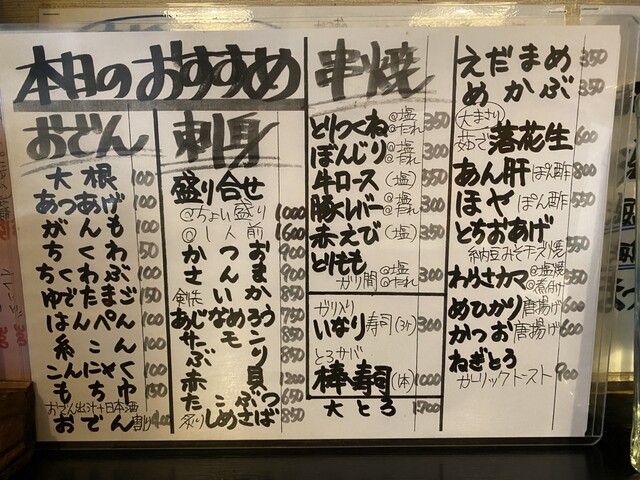 本日のおすすめ
おでん
大根 100
あつあげ 100
がんも 100
ちくわ 50
ちくわぶ 100
ゆでたまご 150
はんぺん 100
糸こん 100
こんにゃく 100
もち巾 150
おでん出汁+日本酒
おでん割り 400
刺身
盛り合せ
@ちょい盛り 1000
@1人前 1600
かつお 900
さんま 900
剣先いか 750
あじなめろう 750
サーモン 850
ぶり 850
赤貝 1200
たこぶつ 650
炙りしめさば 850
串焼
とりつくね @塩 @たれ 350
ぼんじり @塩 @たれ 300
牛ロース (塩) 550
豚レバー @塩 @たれ 300
赤えび (塩) 350
とりもも
ガリ間 @塩 @たれ 300
ガリ入り
いなり寿司(3ケ) 300
とろサバ
棒寿司(1本) 1000
大とろ 1700
えだまめ 350
めかぶ 350
大まさり
茹で落花生 600
あん肝 ぽん酢 800
ほや ぽん酢 550
とちおあげ
納豆みそチーズ焼 550
わらさカマ @塩焼 @煮付け
めひかり唐揚げ 600
かつお唐揚げ 600
ねぎとろ
ガーリックトースト 900